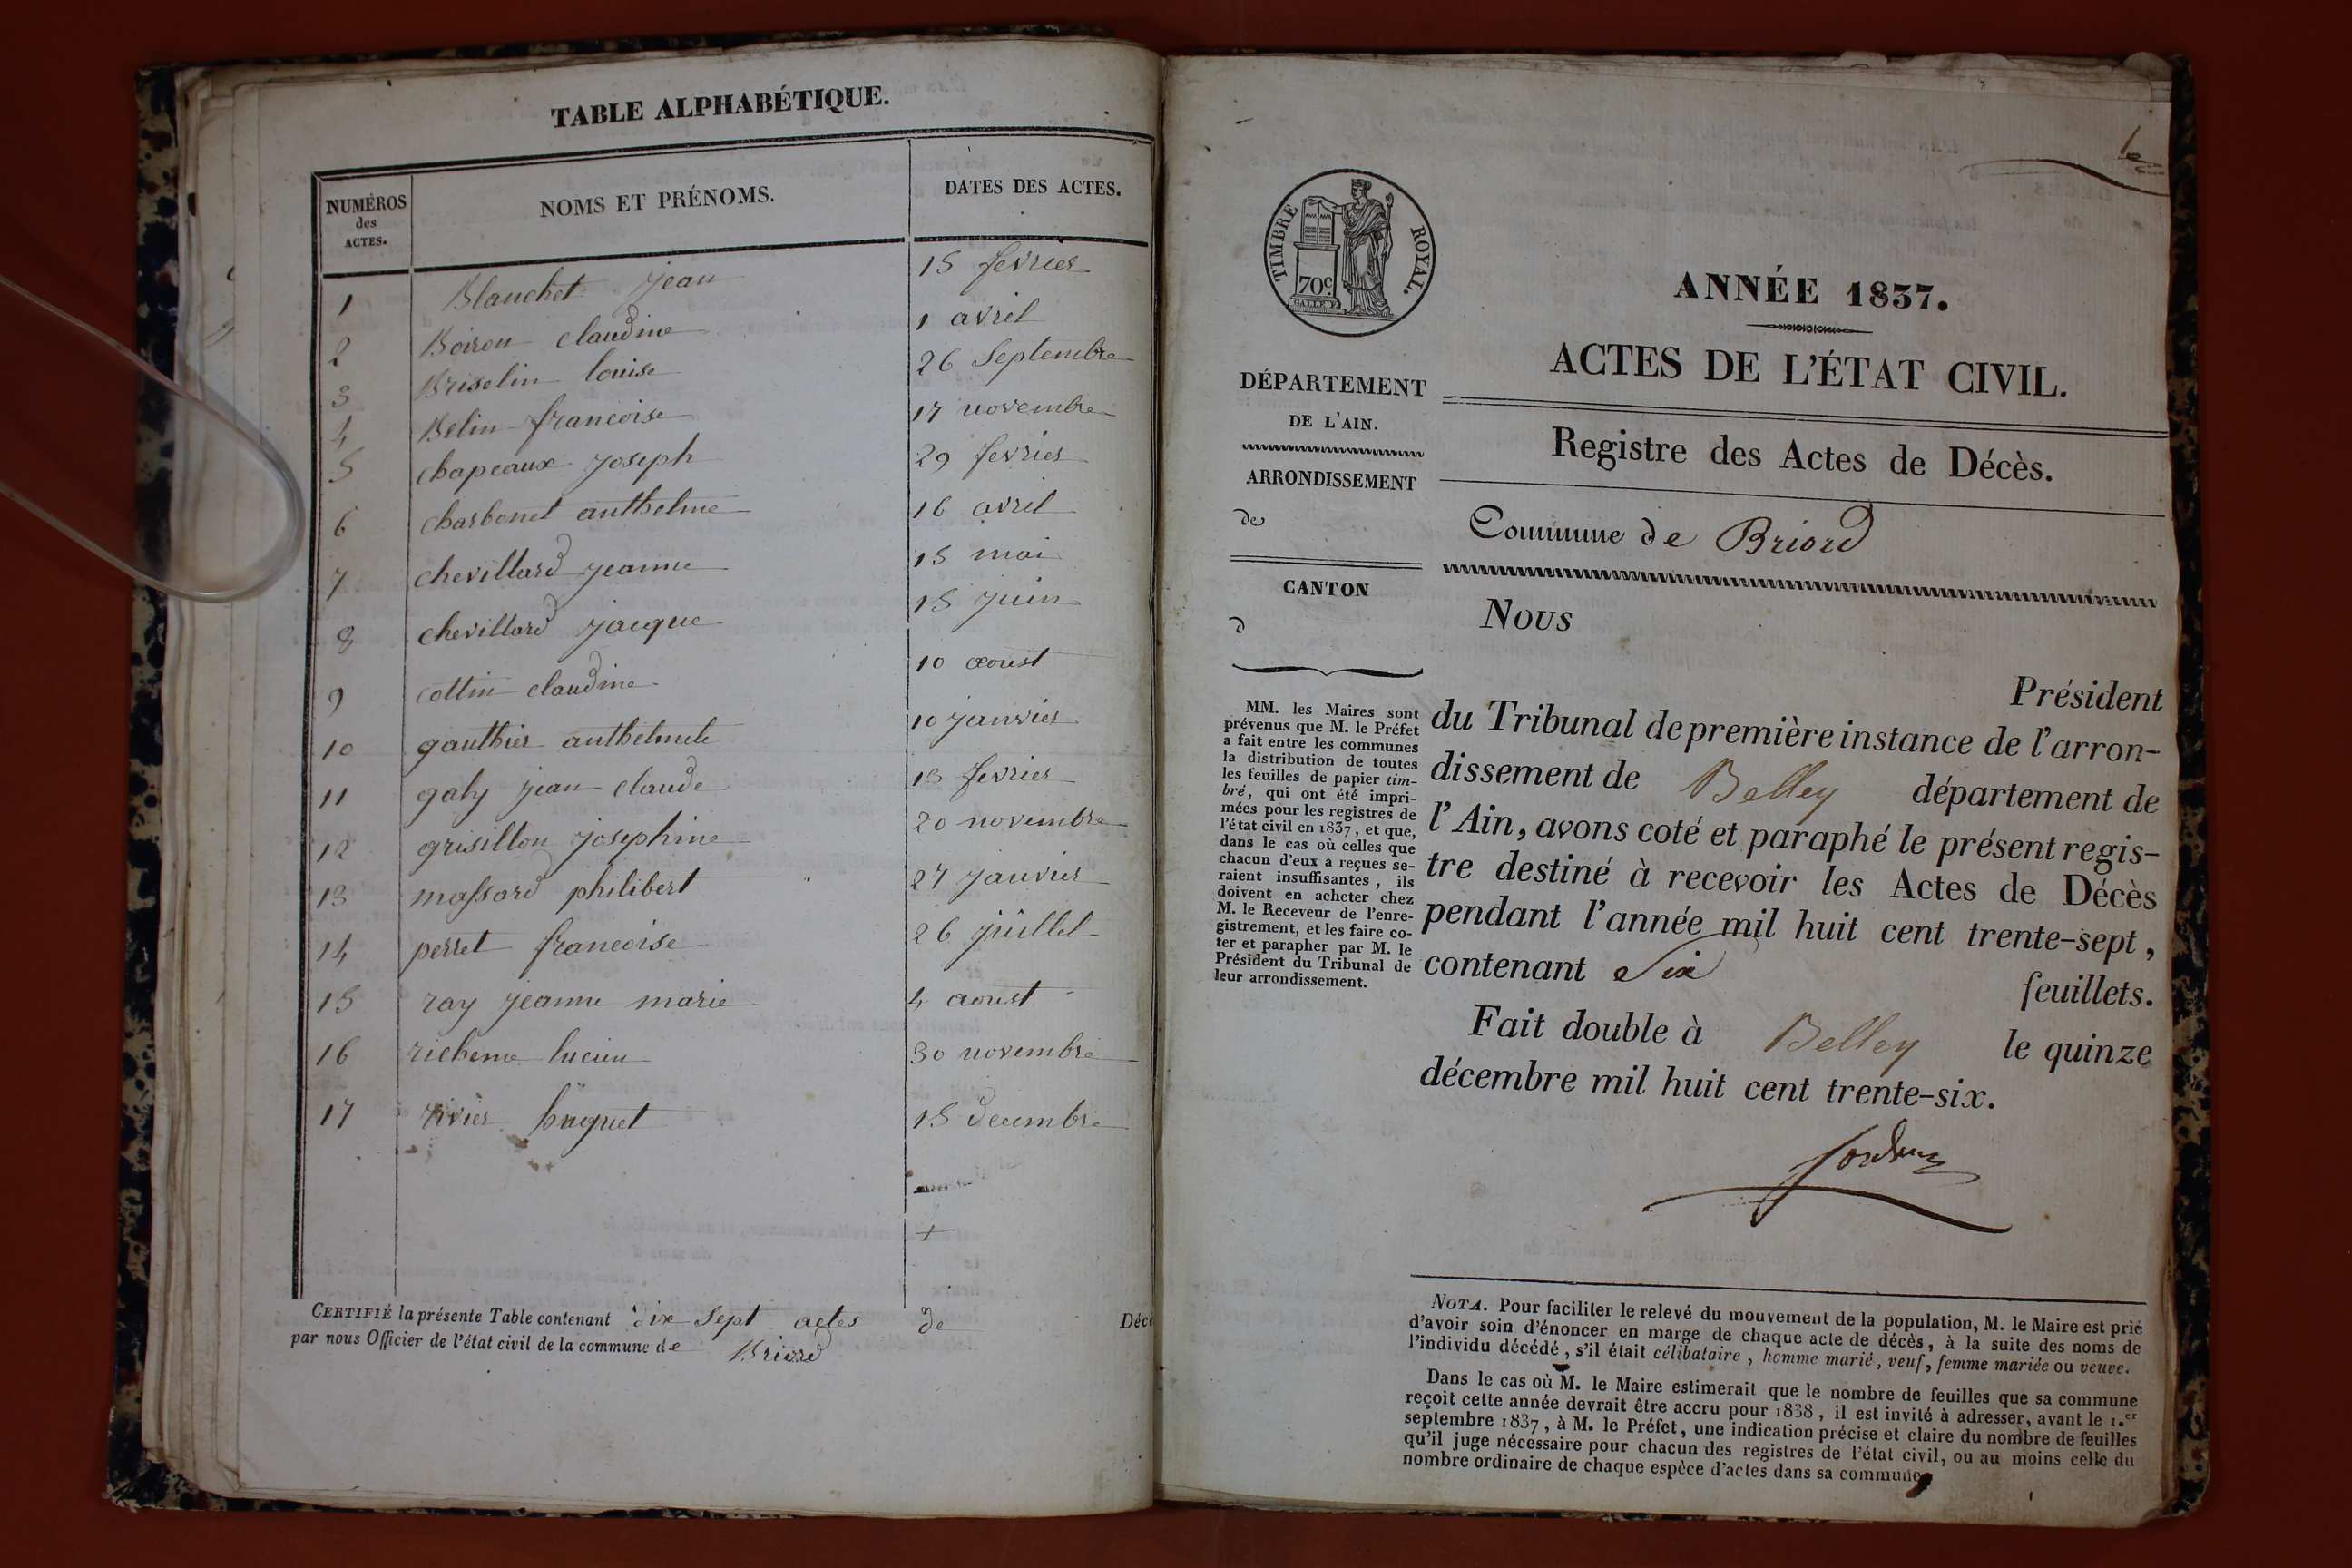 TABLE ALPHABÉTIQUE.
NUMÉROS des ACTES. NOMS ET PRÉNOMS. DATES DES ACTES.
1 Blanchet Jean 15 fevrier
2 Boiron claudine 1 avril
3 Briselin louise 26 Septembre
4 Belin francoise 17 novembre
5 chapeaux Joseph 29 fevrier
6 charbonet anthelme 16 avril
7 chevillard jeanne 15 mai
8 chevillard jacque 15 Juin
9 cottin claudine 10 aoust
10 gauthier 10 janvier
11 galy jean claude 13 fevrier
12 grisillon josephine 20 novembre
13 massard philibert 27 janvier
14 perret francoise 26 juillet
15 ray jeanne marie 4 aoust
16 richeme lucien 30 novembre
17 rivier 15 decembre
CERTIFIÉ la présente Table contenant dix Sept actes de Décè
par nous Officier de l'état civil de la commune de Briord
TIMBRE ROYAL.
70c
ANNÉE 1837.
ACTES DE L'ÉTAT CIVIL.
DÉPARTEMENT
DE L'AIN.
Registre des Actes de Décès.
ARRONDISSEMENT
de
Commune de Briord
CANTON
d
MM. les Maires sont
prévenus que M. le Préfet
a fait entre les communes
la distribution de toutes
les feuilles de papier tim-
bré, qui ont été impri-
mées pour les registres de
l'état civil en 1837, et que,
dans le cas où celles que
chacun d'eux a reçues se-
raient insuffisantes, ils
doivent en acheter chez
M. le Receveur de l'enre-
gistrement, et les faire co-
ter et parapher par M. le
Président du Tribunal de
leur arrondissement.
NOUS
Président
du Tribunal de première instance de l'arron-
dissement de Belley département de
l'Ain, avons coté et paraphé le présent regis-
tre destiné à recevoir les Actes de Décès
pendant l'année mil huit cent trente-sept,
contenant Six feuillets.
Fait double à Belley le quinze
décembre mil huit cent trente-six.
NOTA. Pour faciliter le relevé du mouvement de la population, M. le Maire est prié
d'avoir soin d'énoncer en marge de chaque acte de décès, à la suite des noms de
l'individu décédé, s'il était célibataire, homme marié, veuf, femme mariée ou veuve.
Dans le cas où M. le Maire estimerait que le nombre de feuilles que sa commune
reçoit cette année devrait être accru pour 1838, il est invité à adresser, avant le 1.er
septembre 1837, à M. le Préfet, une indication précise et claire du nombre de feuilles
qu'il juge nécessaire pour chacun des registres de l'état civil, ou au moins celle du
nombre ordinaire de chaque espèce d'actes dans sa commune.